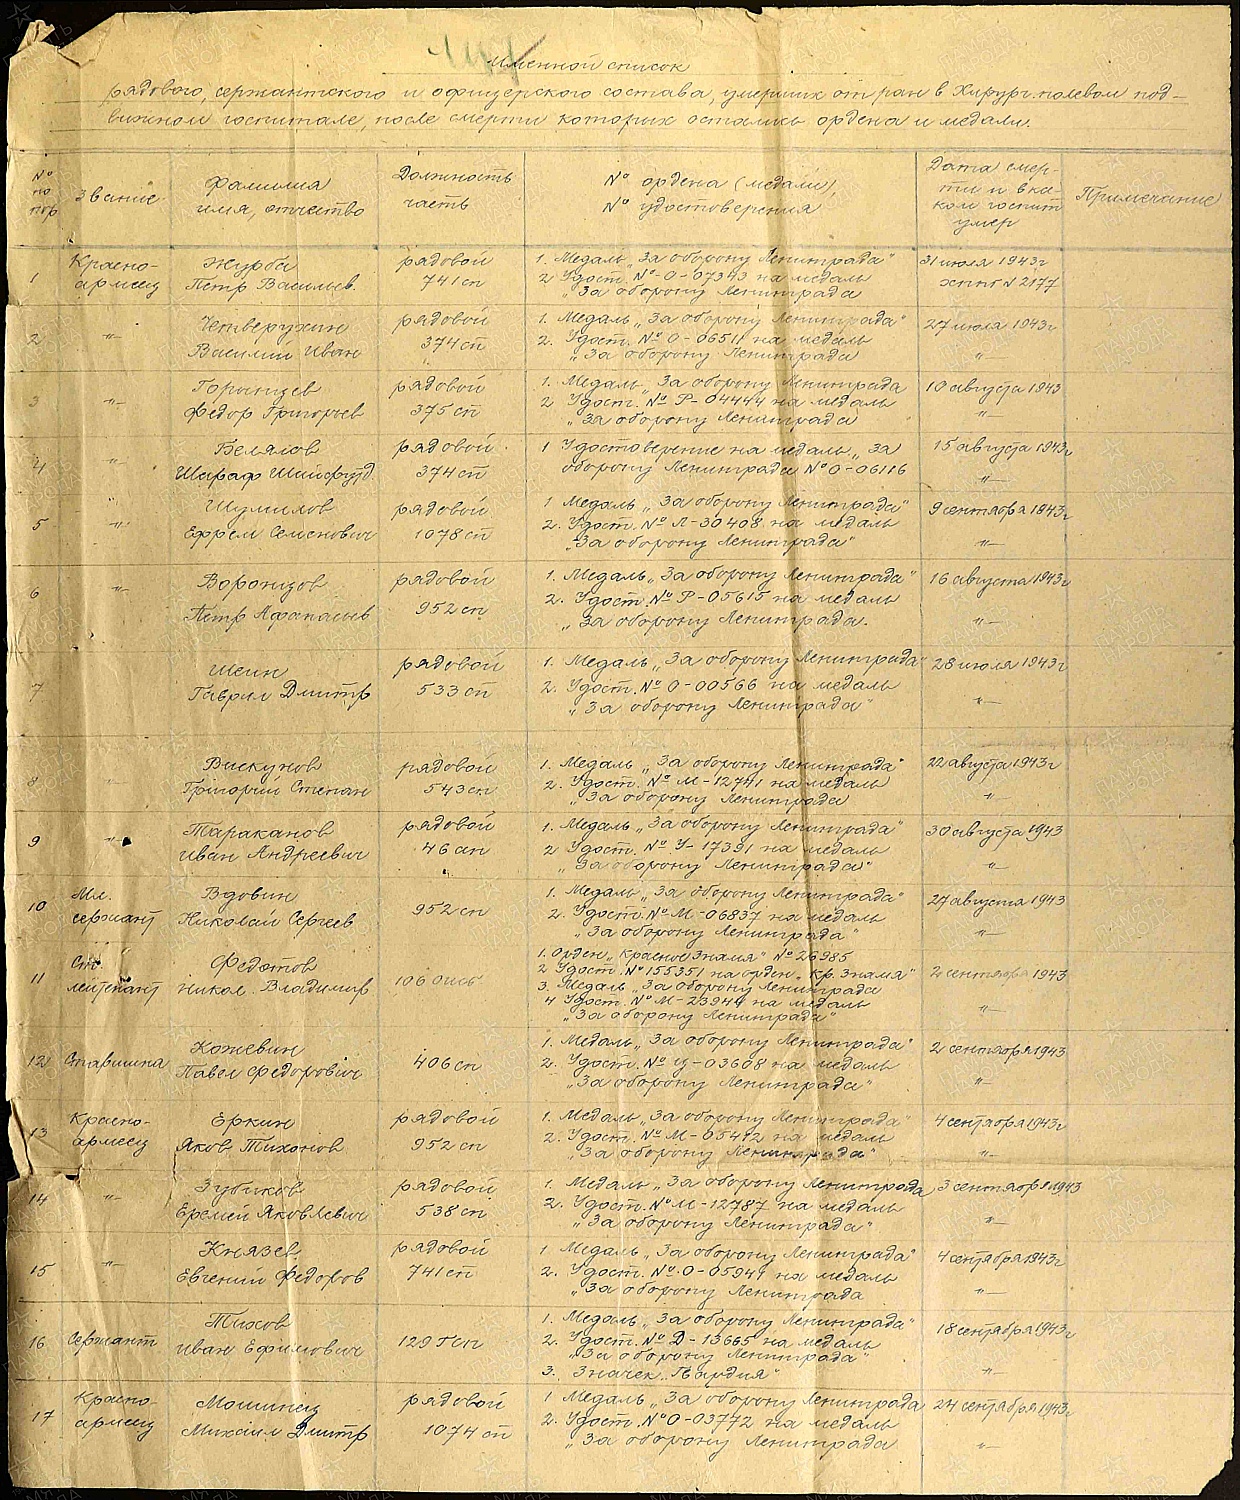 Именной список
рядового, сержантского и офицерского состава, умерших от ран в Хирург. полевом под-
вижном госпитале, после смерти которых остались ордена и медали.
№ по пор
Звание
Фамилия имя, отчество
Должность часть
№ ордена (медали), № удостоверения
Дата смер-ти и в ка-ком госпит умер
Примечание
1 Красно-армеец Журба Петр Васильев. рядовой 741 сп 1. Медаль „За оборону Ленинграда" 31 июля 1943г
2 Удост. № О-07343 на медаль хппг № 2177
„За оборону Ленинграда
2 -"- Четверухин рядовой 1. Медаль „За оборону Ленинграда" 27 июля 1943г
Василий Иван 374 сп 2. Удост. № О-06511 на медаль -"-
„За оборону Ленинграда
3 -"- Горынцев рядовой 1. Медаль „За оборону Ленинграда 10 августа 1943
Федор Григорьев 375 сп 2 Удост. № Р-04444 на медаль -"-
„За оборону Ленинграда
4 -"- Белялов рядовой 1 Удостоверение на медаль „За 15 августа 1943г
Шараф 374 сп оборону Ленинграда № О-06116 -"-
5 -"- Шумилов рядовой 1 Медаль „За оборону Ленинграда" 9 сентября 1943г
Ефрем Семенович 1078 сп 2. Удост. № Л-30408 на медаль -"-
„За оборону Ленинграда"
6 -"- Воронцов рядовой 1. Медаль „За оборону Ленинграда" 16 августа 1943г
Петр Афанасьев 952 сп 2. Удост. № Р-05615 на медаль -"-
„За оборону Ленинграда.
7 Шеин рядовой 1. Медаль „За оборону Ленинграда" 28 июля 1943г
Гаврил Дмитр 533 сп 2. Удост. № О-00566 на медаль -"-
„За оборону Ленинграда"
8 -"- Вискунов рядовой 1. Медаль „За оборону Ленинграда" 22 августа 1943г
Григорий Степан 543 сп 2. Удост. № М-12741 на медаль -"-
„За оборону Ленинграда
9 -"- Тараканов рядовой 1. Медаль „За оборону Ленинграда" 30 августа 1943
Иван Андреевич 46 сп 2 Удост. № У-17391 на медаль -"-
„За оборону Ленинграда"
10 Мл. сержант Вдовин 952 сп 1. Медаль „За оборону Ленинграда" 24 августа 1943
Николай Сергеев 2. Удост. № М-06837 на медаль -"-
„За оборону Ленинграда"
11 Ст. лейтенант Федотов 1. Орден „Красное Знамя" № 26985
Никол. Владимир 106 2 Удост. № 155351 на орден „Кр. Знамя" 2 сентября 1943
3. Медаль „За оборону Ленинграда
4 Удост. № М-23944 на медаль -"-
„За оборону Ленинграда"
12 Старшина Кожевин 406 сп 1. Медаль „За оборону Ленинграда" 2 сентября 1943
Павел Федорович 2. Удост. № У-03608 на медаль -"-
„За оборону Ленинграда"
13 Красно-армеец Еркин рядовой 1. Медаль „За оборону Ленинграда" 4 сентября 1943г
Яков Тихонов 952 сп 2. Удост. № М-05472 на медаль -"-
„За оборону Ленинграда"
14 -"- Зубиков рядовой 1. Медаль „За оборону Ленинграда 3 сентября 1943
Еремей Яковлевич 538 сп 2. Удост. № М-12787 на медаль -"-
„За оборону Ленинграда"
15 -"- Князев рядовой 1 Медаль „За оборону Ленинграда" 4 сентября 1943г
Евгений Федоров 741 сп 2. Удост. № О-05941 на медаль -"-
„За оборону Ленинграда
16 Сержант Тихов 129 Гсп 1. Медаль „За оборону Ленинграда" 18 сентября 1943г
Иван Ефимович 2. Удост. № Д-13665 на медаль
„За оборону Ленинграда" -"-
3. Значек „Гвардия"
17 Красно-армеец Мошинец рядовой 1 Медаль „За оборону Ленинграда 24 сентября 1943г
Михаил Дмитр 1074 сп 2. Удост. № О-03772 на медаль -"-
„За оборону Ленинграда